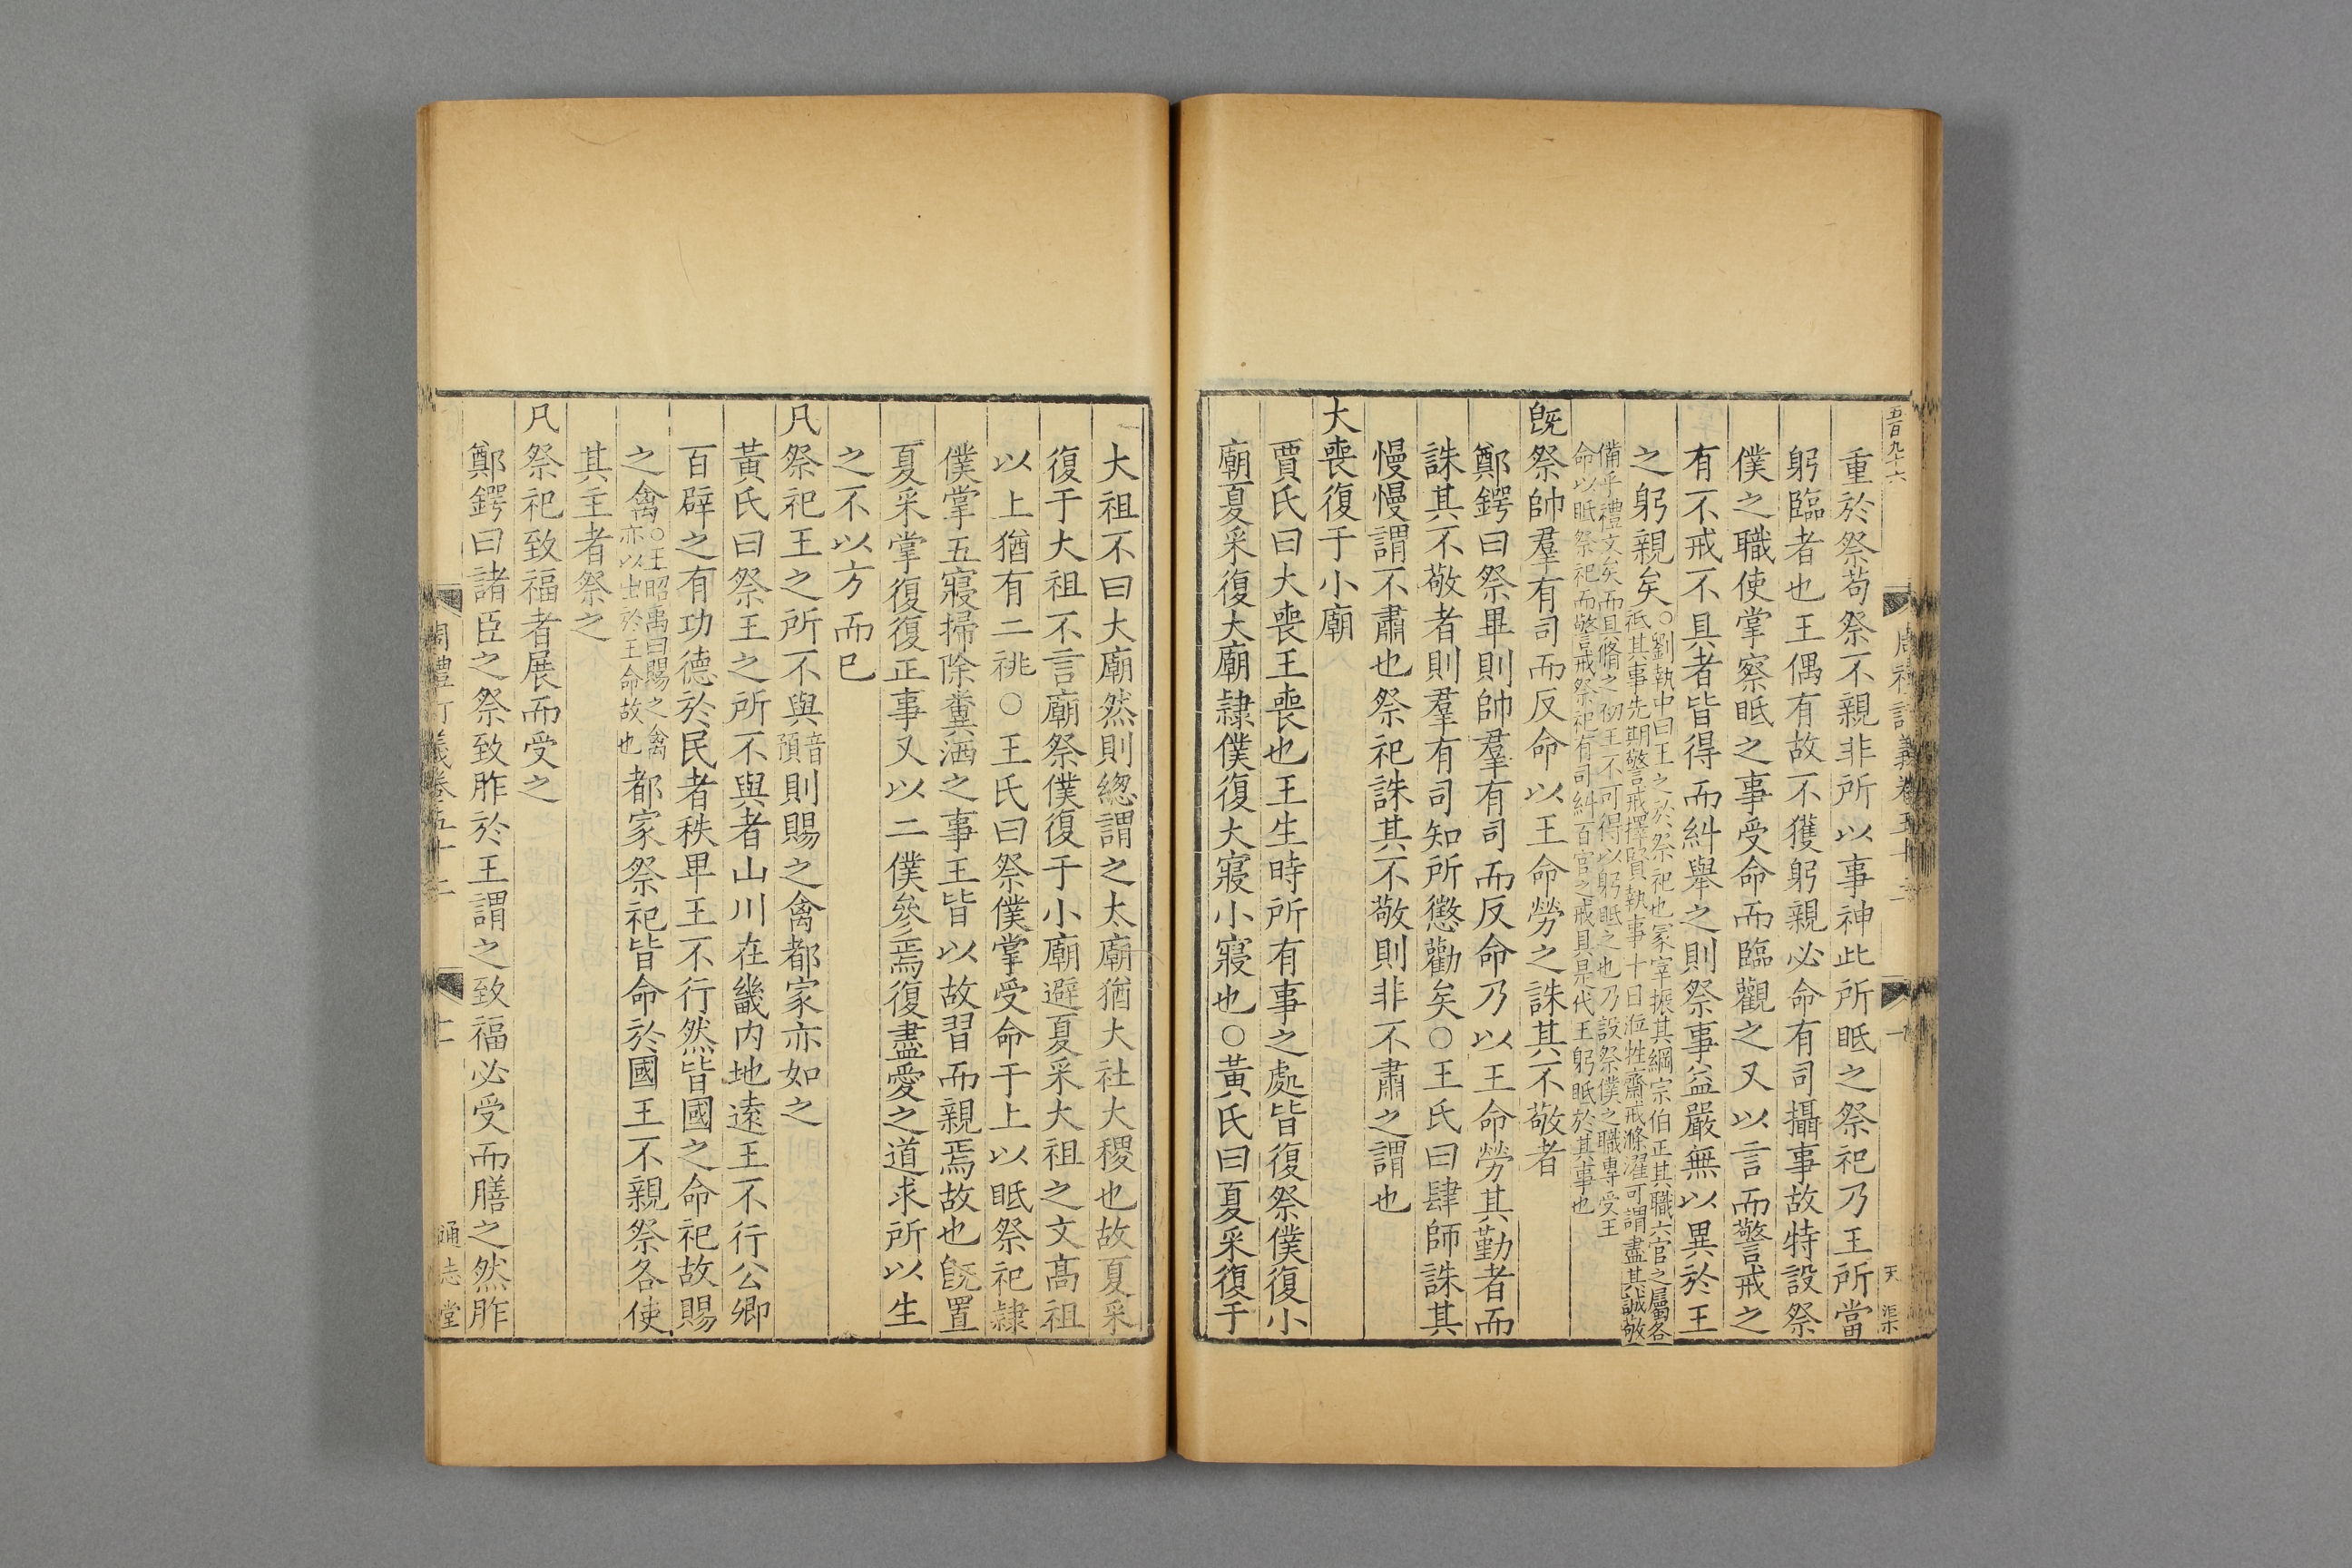 五百九十六
重於祭苟祭不親非所以事神此所眂之祭祀乃王所當
躬臨者也王偶有故不獲躬親必命有司攝事故特設祭
僕之職使掌察眂之事受命而臨觀之又以言而警戒之
有不戒不具者皆得而糾舉之則祭事益嚴無以異於王
之躬親矣○劉執中曰王之於祭祀也冢宰振其綱宗伯正其職六官之屬各
祗其事先期警戒擇賢執事十日涖牲齋戒滌濯可謂盡其誠敬
備乎禮文矣而具脩之物王不可得以躬眂之也乃設祭僕之職專受王
命以眂祭祀而警戒祭祀有司糾百官之戒具是代王躬眂於其事也
旣祭帥羣有司而反命以王命勞之誅其不敬者
鄭鍔曰祭畢則帥羣有司而反命乃以王命勞其勤者而
誅其不敬者則羣有司知所懲勸矣○王氏曰肆師誅其
慢慢謂不肅也祭祀誅其不敬則非不肅之謂也
大喪復于小廟
賈氏曰大喪王喪也王生時所有事之處皆復祭僕復小
廟夏采復大廟隷僕復大寢小寢也○黃氏曰夏采復于
周禮訂義卷五十二
十
天
渠
大祖不曰大廟然則緫謂之太廟猶大社大稷也故夏采
復于大祖不言廟祭僕復于小廟避夏采大祖之文高祖
以上猶有二祧○王氏曰祭僕掌受命于上以眂祭祀隷
僕掌五寢掃除糞洒之事王皆以故習而親焉故也旣置
夏采掌復復正事又以二僕參焉復盡愛之道求所以生
之不以方而已
凡祭祀王之所不與音預則賜之禽都家亦如之
黃氏曰祭王之所不與者山川在畿内地遠王不行公卿
百辟之有功德於民者秩畢王不行然皆國之命祀故賜
之禽○王昭禹曰賜之禽亦以出於王命故也都家祭祀皆命於國王不親祭各使
其主者祭之
凡祭祀致福者展而受之
鄭鍔曰諸臣之祭致胙於王謂之致福必受而膳之然胙
周禮訂義卷五十二
十一
通志堂